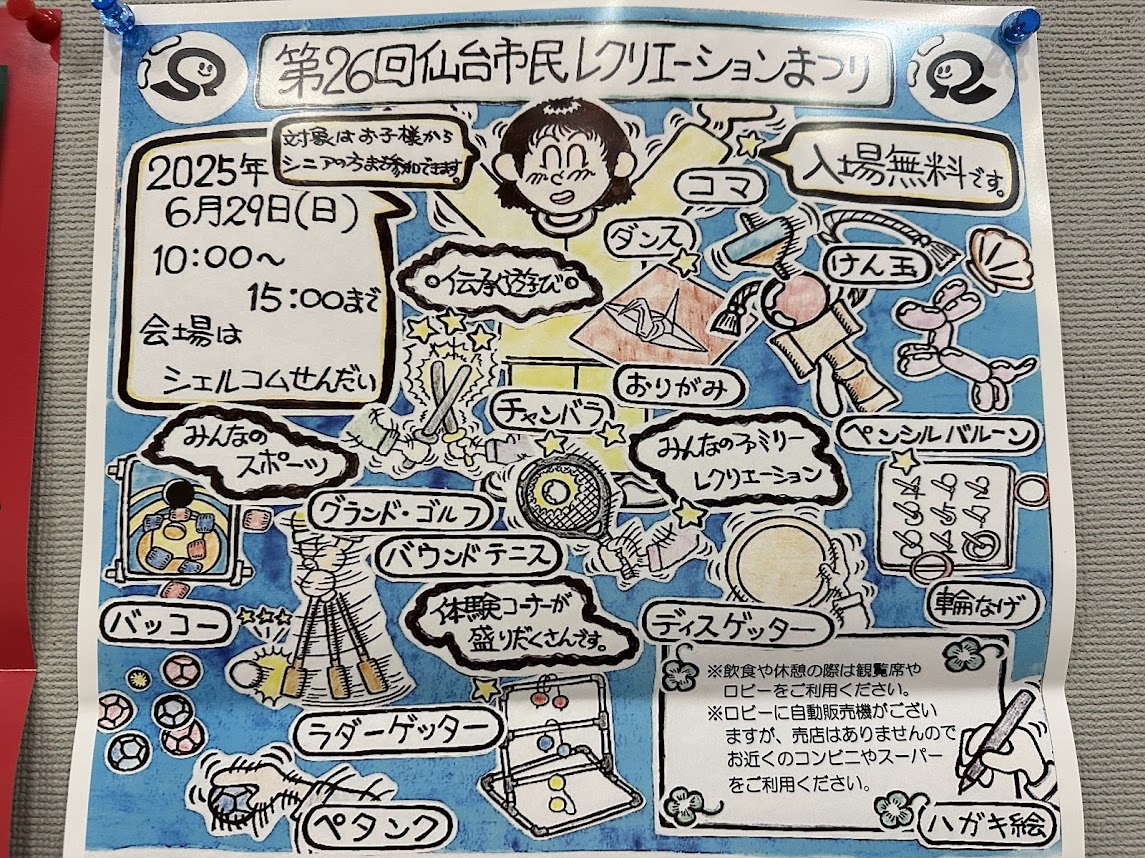 第26回仙台市民レクリエーションまつり
対象はお子様から
シニアの方まで参加できます。
2025年
6月29日(日)
10:00〜
15:00まで
会場は
シェルコムせんだい
入場無料です。
コマ
ダンス
けん玉
伝承遊び
おりがみ
チャンバラ
ペンシルバルーン
みんなの
スポーツ
みんなのファミリー
レクリエーション
グランド・ゴルフ
バウンドテニス
バッコー
体験コーナーが
盛りだくさんです。
ディスゲッター
輪なげ
ラダーゲッター
※飲食や休憩の際は観覧席や
ロビーをご利用ください。
※ロビーに自動販売機がござい
ますが、売店はありませんので
お近くのコンビニやスーパー
をご利用ください。
ペタンク
ハガキ絵